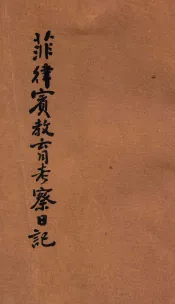 菲律賓教育考察日記